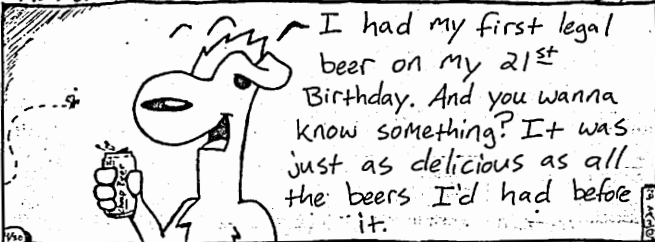 I had my first legal
beer on my 21st
Birthday. And you wanna
know something? It was
just as delicious as all
the beers I'd had before
it.
Cheap Beer